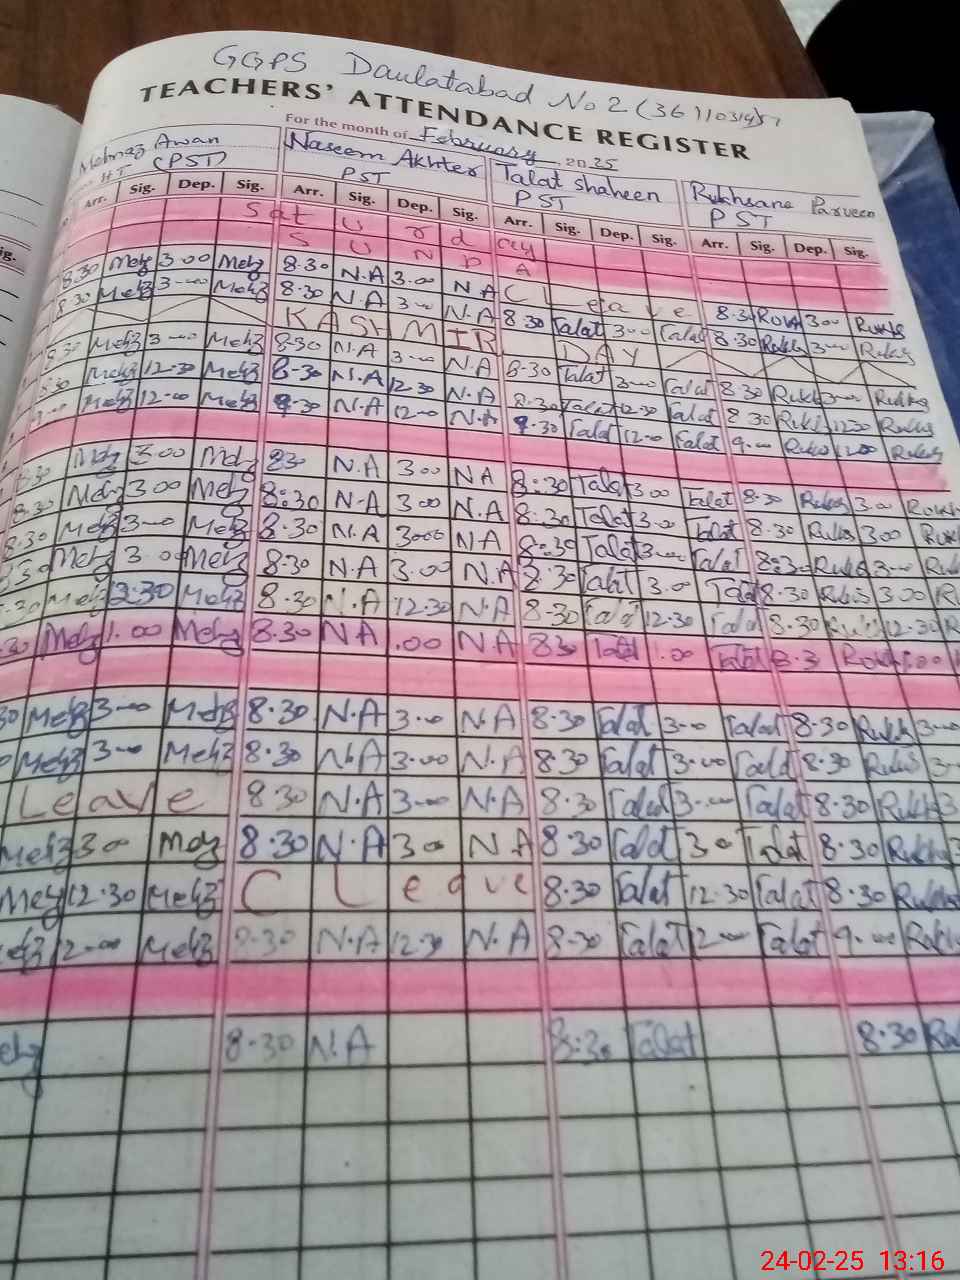 GGPS Daulatabad No 2 (36110319)
TEACHERS' ATTENDANCE REGISTER
For the month of February 2025
Mehnaz Awan (PST) Naseem Akhter PST Talat shaheen PST Rukhsana Parveen PST
Arr. Sig. Dep. Sig. Arr. Sig. Dep. Sig. Arr. Sig. Dep. Sig. Arr. Sig. Dep. Sig.
Sat U r d ay
S U N D A
8.30 Mehz 3.00 Mehz 8.30 N.A 3.00 N.A C Leave 8.30 Rukh 3.00 Rukhs
8.30 Mehz 3.00 Mehz 8.30 N.A 3.00 N.A 8.30 Talat 3.00 Talat 8.30 Rukhs 3.00 Rukhs
KASHMIR DAY
8.30 Mehz 3.00 Mehz 8.30 N.A 3.00 N.A 8.30 Talat 3.00 Talat 8.30 Rukhs 3.00 Rukhs
8.30 Mehz 12.30 Mehz 8.30 N.A 12.30 N.A 8.30 Talat 12.30 Talat 8.30 Rukhs 12.30 Rukhs
Mehz 12.00 Mehz 9.30 N.A 12.00 N.A 9.30 Talat 12.00 Talat 9.00 Rukhs 12.00 Rukhs
8.30 Mehz 3.00 Mehz 8.30 N.A 3.00 NA 8:30 Talat 3.00 Talat 8.30 Rukhs 3.00 Rukh
8.30 Mehz 3.00 Mehz 8:30 N.A 3.00 N.A 8:30 Talat 3.00 Talat 8.30 Rukhs 3.00 Rukh
8.30 Mehz 3.00 Mehz 8.30 N.A 3.00 NA 8:30 Talat 3.00 Talat 8:30 Rukhs 3.00 Ruk
8.30 Mehz 3.00 Mehz 8.30 N.A 3.00 N.A 8.30 Talat 3.00 Talat 8.30 Rukhs 3.00 R
.30 Mehz 12.30 Mehz 8.30 N.A 12.30 N.A 8.30 Talat 12.30 Talat 8.30 Rukhs 12.30 R
.30 Mehz 1.00 Mehz 8.30 NA 1.00 NA 8.30 Talat 1.00 Talat 8.3 Rukh 1.00
30 Mehz 3.00 Mehz 8.30 N.A 3.00 N.A 8.30 Talat 3.00 Talat 8.30 Rukhs 3.00
Mehz 3.00 Mehz 8.30 N.A 3.00 N.A 8.30 Talat 3.00 Talat 8.30 Rukhs 3
Leave 8.30 N.A 3.00 N.A 8.30 Talat 3.00 Talat 8.30 Rukhs 3
Mehz 3.00 Mehz 8.30 N.A 3.00 NA 8.30 Talat 3.00 Talat 8.30 Rukhs 3
Mehz 12.30 Mehz C Leave 8.30 Talat 12.30 Talat 8.30 Rukhs
ehz 12.00 Mehz 8.30 N.A 12.30 N.A 8.30 Talat 12.00 Talat 9.00 Rukh
ehz 8.30 N.A 8:30 Talat 8.30 Ru
24-02-25 13:16